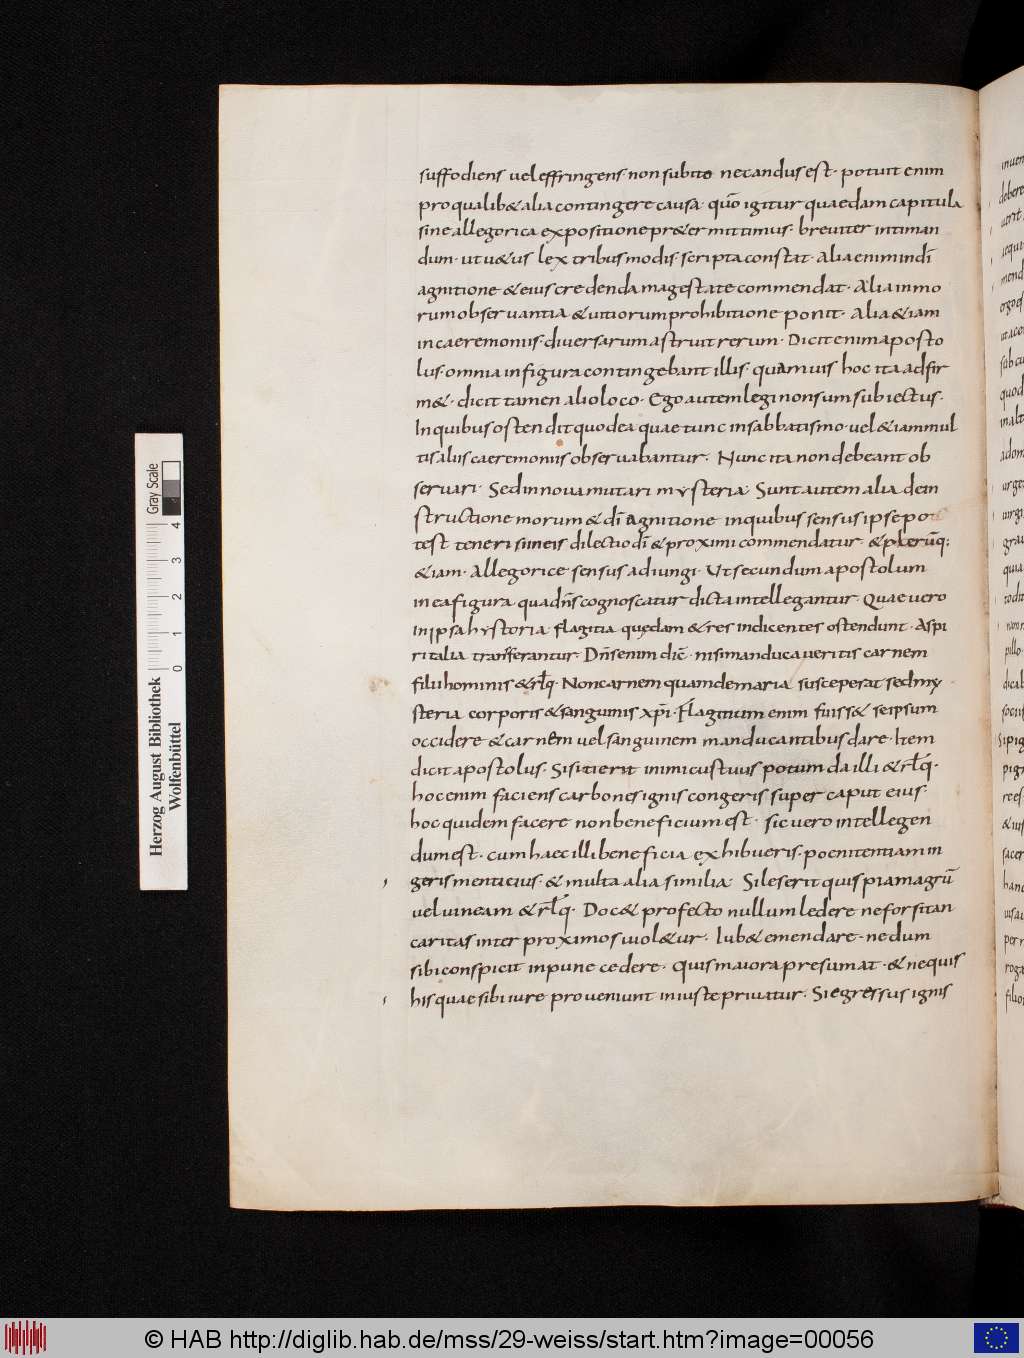 suffodiens uel effringens non subito necandus est. potuit enim
pro qualib& alia contingere causa. quō igitur quaedam capitula
sine allegorica expositione pr&ermittimus. breuiter intiman
dum. ut u&us lex tribus modis scripta constat. Alia enim in dī
agnitione & eius credenda magestate commendat. Alia in mo
rum obseruantia & uitiorum prohibitione ponit. Alia &iam
in caeremoniis. diuersarum astruit rerum. Dicit enim aposto
lus. omnia in figura contingebant illis. quamuis hoc ita adfir
m&. dicit tamen alio loco. Ego autem legi non sum subiectus.
In quibus ostendit quod ea quae tunc in sabbatismo uel &iam mul
tis aliis caeremoniis obseruabantur. Nunc ita non debeant ob
seruari. Sed in noua mutari mysteria. Sunt autem alia de in
structione morum & dī agnitione in quibus sensus ipse pot
test teneri si in eis dilectio dī & proximi commendatur & plerūq:
&iam. Allegorice sensus adiungi. Ut secundum apostolum
in ea figura qua dn̄s cognoscatur dicta intellegantur. Quae uero
in ipsa hystoria flagitia quędam & res indicentes ostendunt. Aspi
ritalia transferantur. Dn̄s enim dic̄. nisi manducaueritis carnem
filii hominis & rl̄q. Non carnem quam de maria susceperat sed my
steria corporis & sanguinis xp̄i. Flagitium enim fuiss& seipsum
occidere & carnem uel sanguinem manducantibus dare. Item
dicit apostolus. Si sitierit inimicus tuus potum da illi & rl̄q.
hoc enim faciens carbones ignis congeris super caput eius.
hoc quidem facere non beneficium est. sic uero intellegen
dum est. cum haec illi beneficia exhibueris. poenitentiam in
geris menti eius. & multa alia similia. Si leserit quispiam agrū
uel uineam & rl̄q. Doc& profecto nullum ledere ne forsitan
caritas inter proximos uiol&ur. Iub& emendare. ne dum
sibi conspicit inpune cedere. quis maiora presumat. & ne quis
his quae sibi iure proueniunt iniuste priuatur. Si egressus ignis
Herzog August Bibliothek
Wolfenbüttel
Gray Scale
0 1 2 3 4
© HAB http://diglib.hab.de/mss/29-weiss/start.htm?image=00056